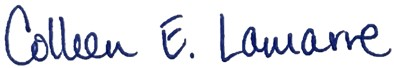 Colleen E. Lamarre